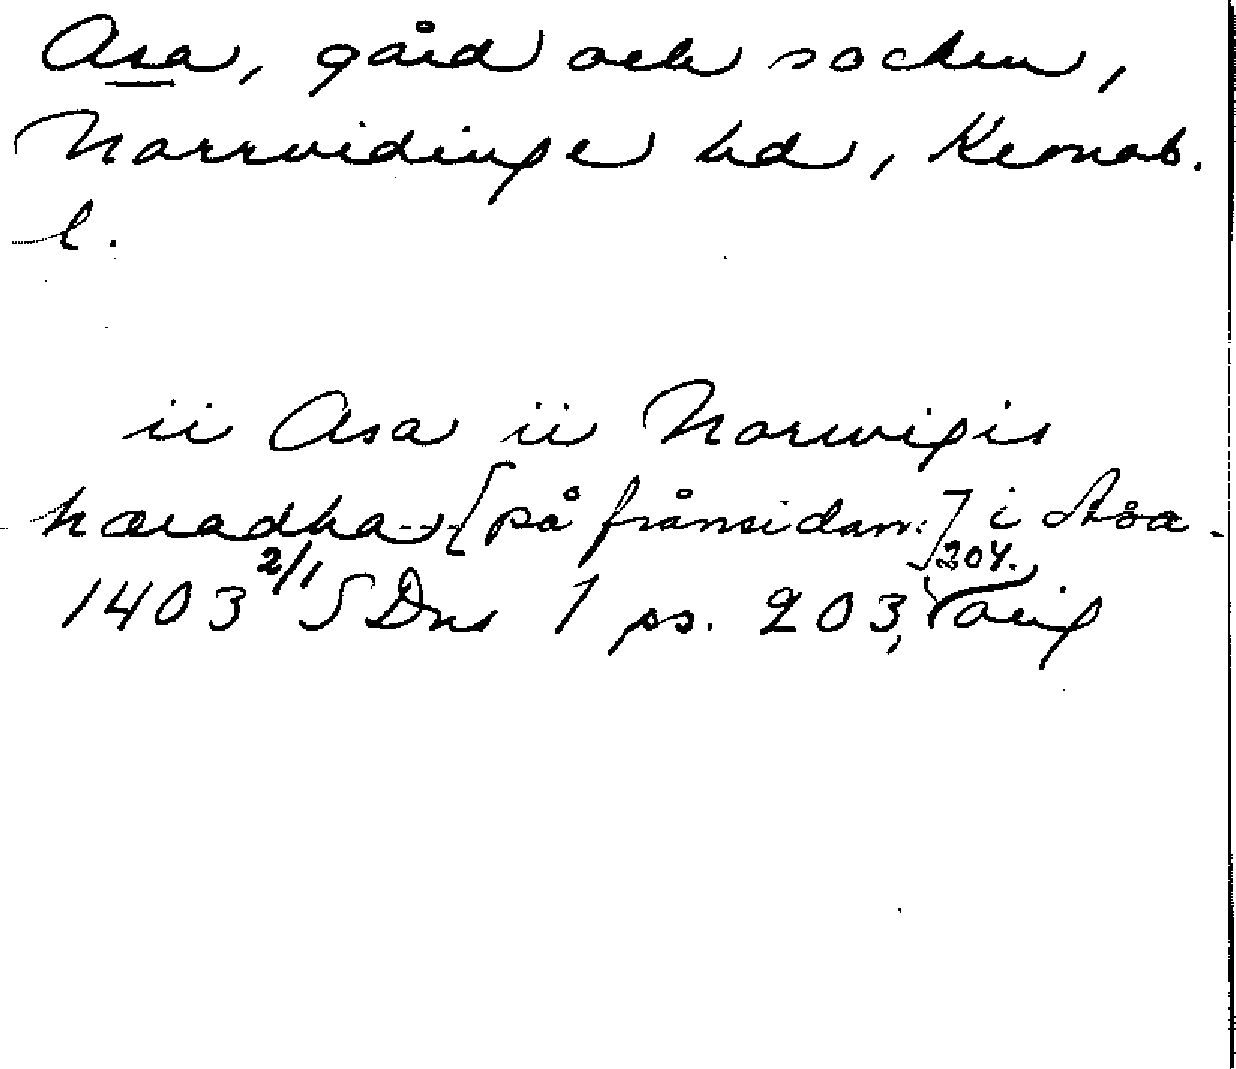 Asa, gård och socken,
Norrvidinge hd, Kronob.
l.
ii Asa ii Norwigis
hæradha [på frånsidan:] i Asa
1403 2/1 SDns 1 ss. 203, 204. orig